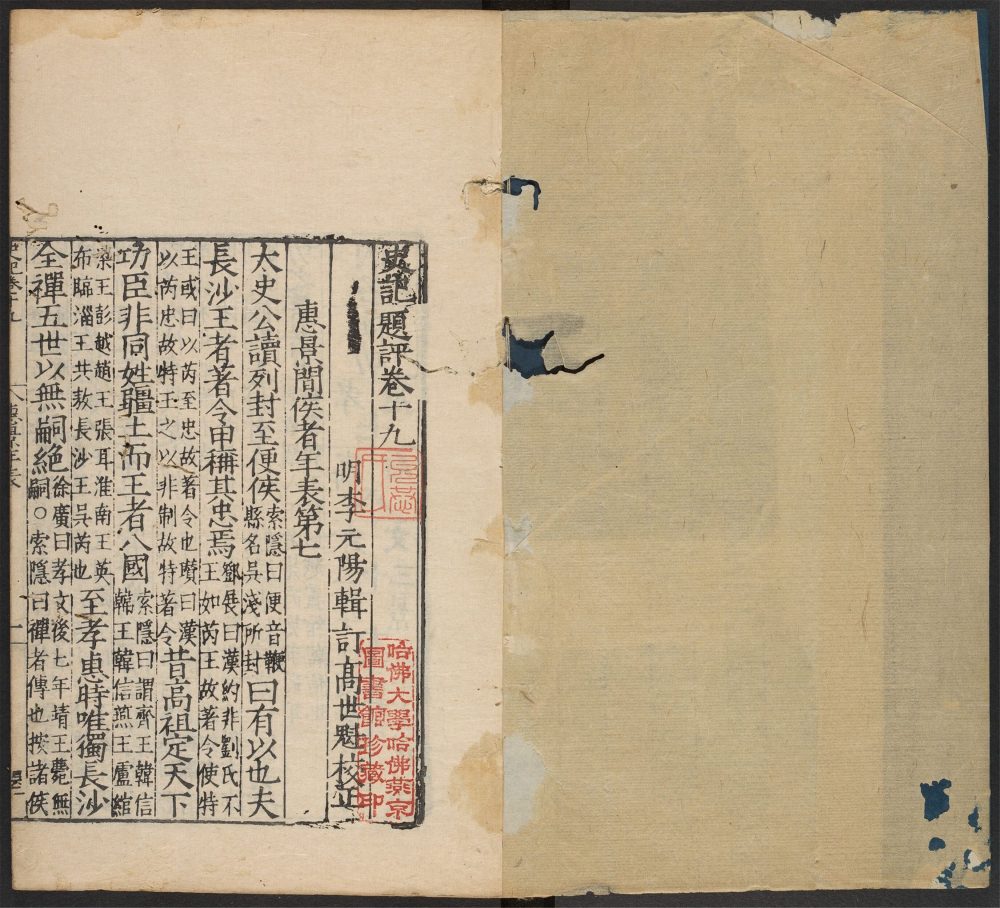 史記題評卷十九
明李元陽輯訂高世魁校正
惠景間侯者年表第七
太史公讀列封至便侯索隱曰便音鞭縣名吳淺所封曰有以也夫
長沙王者著令甲稱其忠焉鄧展曰漢約非劉氏不王如芮王故著令使特
王或曰以芮至忠故著令也瓚曰漢以芮忠故特王之以非制故特著令昔高祖定天下
功臣非同姓疆土而王者八國索隱曰謂齊王韓信韓王韓信燕王盧綰
梁王彭越趙王張耳淮南王英布臨淄王共敖長沙王吳芮也至孝惠時唯獨長沙
全禪五世以無嗣絶徐廣曰孝文後七年靖王薨無嗣○索隱曰禪者傳也按諸侯
史記卷十九
哈佛大學哈佛燕京
圖書館珍藏印